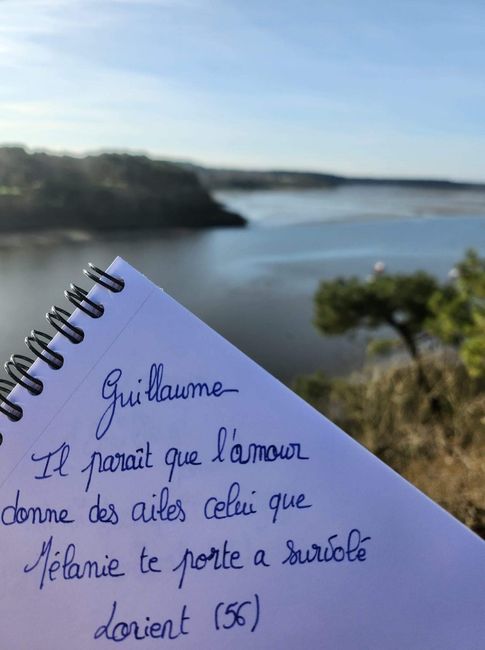 Guillaume
Il paraît que l'amour
donne des ailes celui que
Mélanie te porte a survolé
Lorient (56)